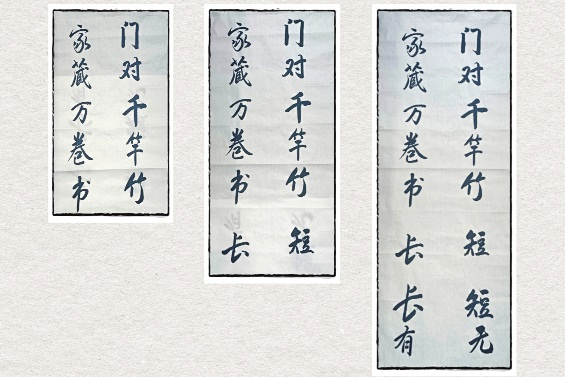 门对千竿竹
家藏万卷书
门对千竿竹短
家藏万卷书长
门对千竿竹短短无
家藏万卷书长长有